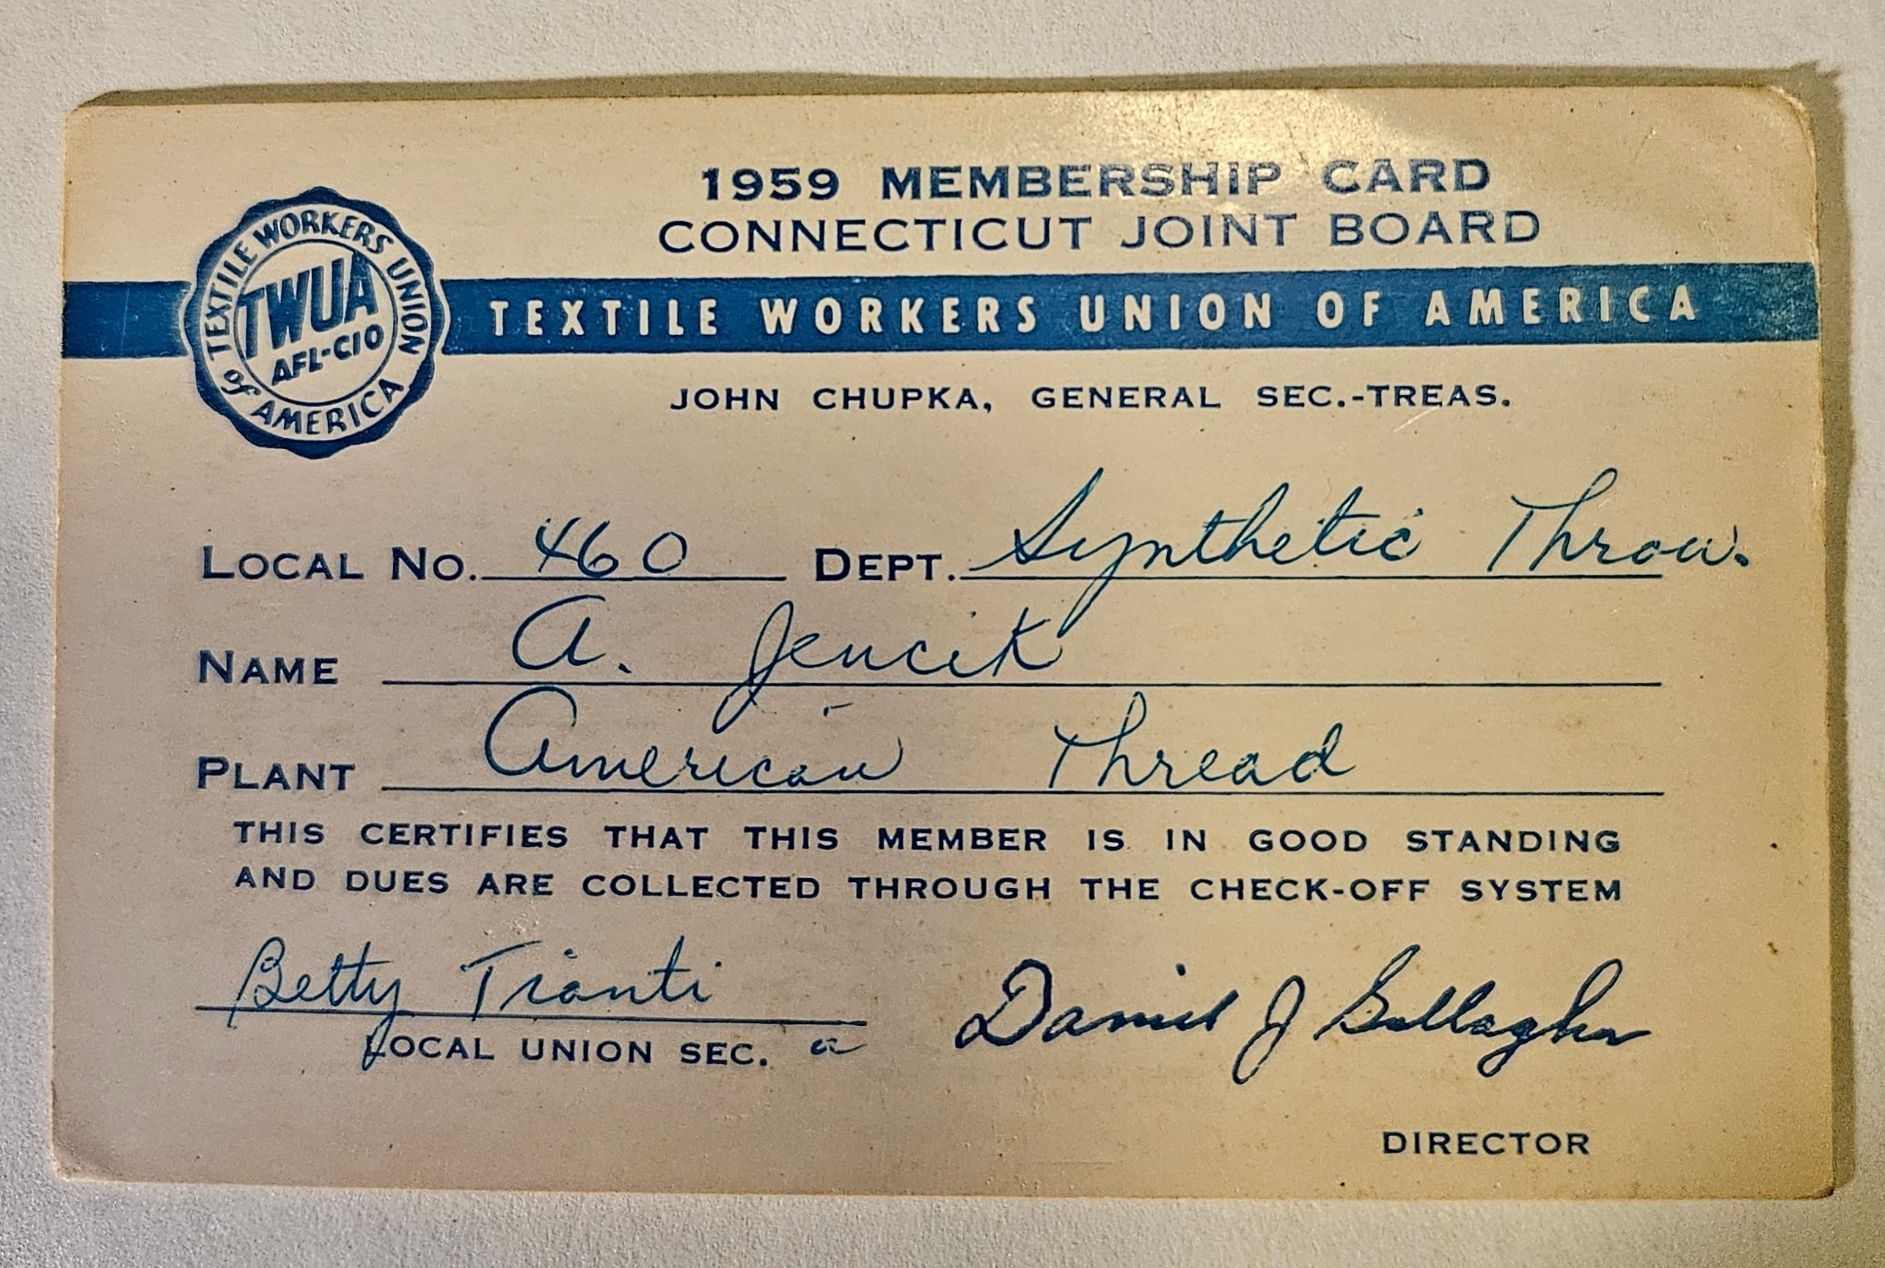 1959 MEMBERSHIP CARD
CONNECTICUT JOINT BOARD
TEXTILE WORKERS UNION of AMERICA
TWUA
AFL-CIO
TEXTILE WORKERS UNION OF AMERICA
JOHN CHUPKA, GENERAL SEC.-TREAS.
LOCAL NO. 460 DEPT. Synthetic Throw.
NAME A. Jencik
PLANT American Thread
THIS CERTIFIES THAT THIS MEMBER IS IN GOOD STANDING
AND DUES ARE COLLECTED THROUGH THE CHECK-OFF SYSTEM
Betty Tianti Daniel J Gallagher
LOCAL UNION SEC. a
DIRECTOR